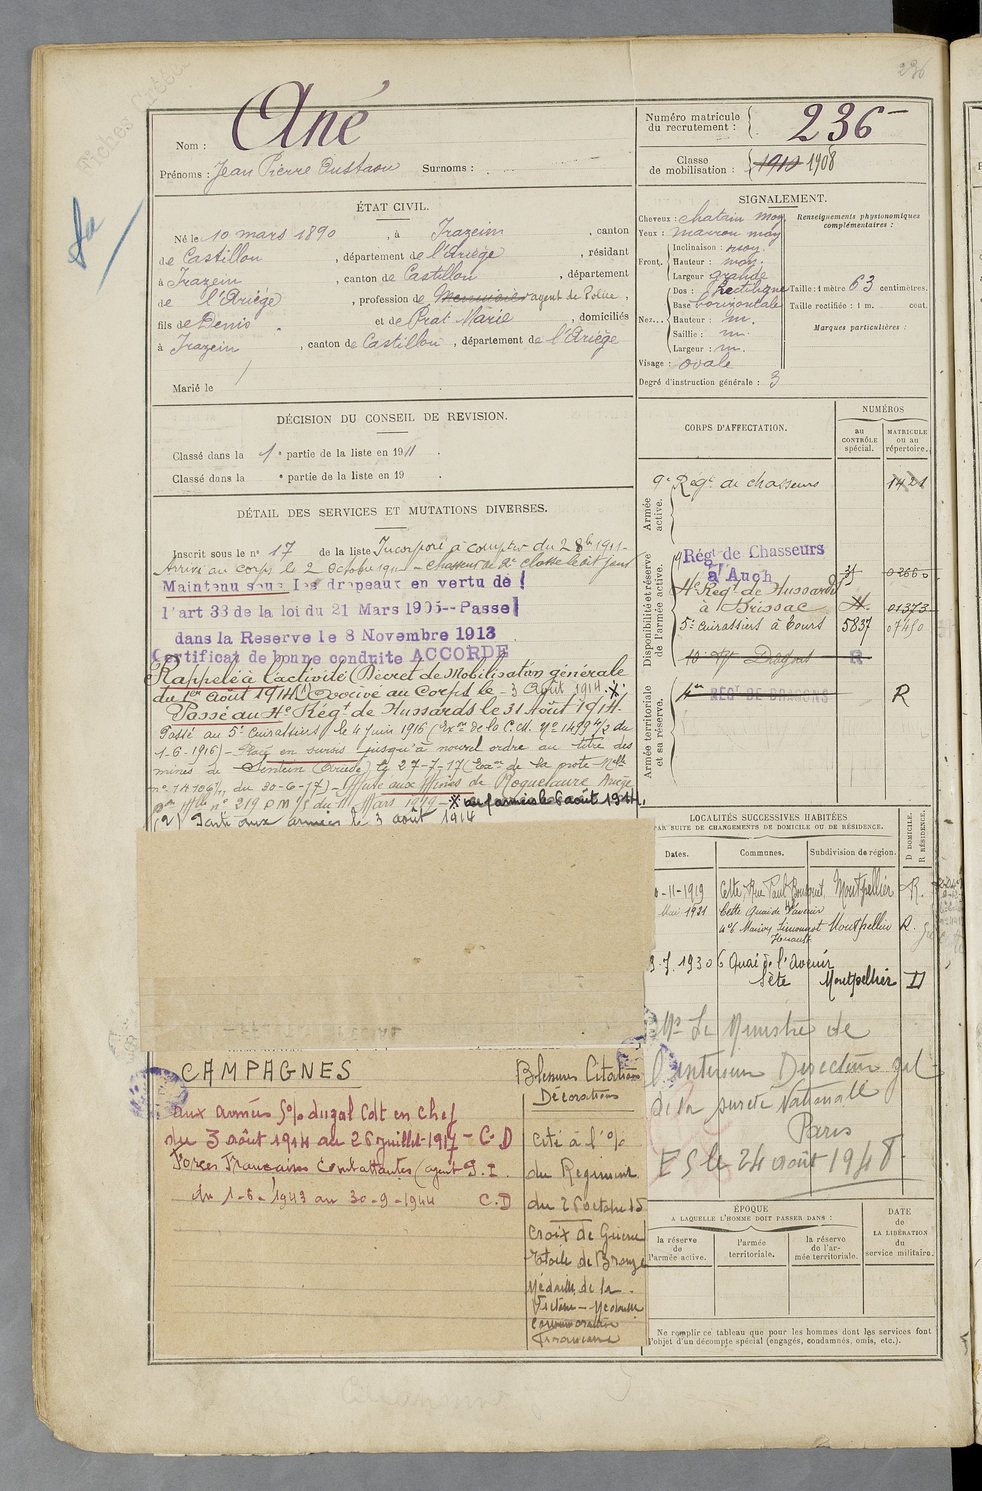 236
Fiches
Ané
Nom :
Prénoms : Jean Pierre Eustase Surnoms :
Numéro matricule du recrutement : 236
Classe de mobilisation : 1910 1908
ÉTAT CIVIL.
Né le 10 mars 1890, à Irazein, canton
de Castillon, département de l'Ariège, résidant
à Irazein, canton de Castillon, département
de l'Ariège, profession de Menuisier agent de Police,
fils de Denis et de Prat Marie, domiciliés
à Irazein, canton de Castillon, département de l'Ariège
Marié le
SIGNALEMENT.
Cheveux : chatain moy
Yeux : marron moy
Front. Inclinaison : moy.
Hauteur : moy.
Largeur grande
Nez... Dos : Rectiligne
Base horizontale
Hauteur : m.
Saillie : m.
Largeur : m.
Visage : ovale
Degré d'instruction générale : 3
Renseignements physionomiques complémentaires :
Taille : 1 mètre 63 centimètres.
Taille rectifiée : 1 m. cent.
Marques particulières :
DÉCISION DU CONSEIL DE REVISION.
Classé dans la 1e partie de la liste en 1911.
Classé dans la e partie de la liste en 19 .
DÉTAIL DES SERVICES ET MUTATIONS DIVERSES.
Inscrit sous le n° 17 de la liste Incorporé à compter du 2 8bre 1911-
Arrivé au corps le 2 Octobre 1911 - chasseur de 2e classe le dit jour
Maintenu sous les drapeaux en vertu de
l'art 33 de la loi du 21 Mars 1905--Passe
dans la Reserve le 8 Novembre 1913
Certificat de bonne conduite ACCORDE
Rappelé à l'activité (Décret de Mobilisation générale
du 1er Août 1914) (2) Arrivé au Corps le - 3 Août 1914.
Passé au 4e Régt de Hussards le 31 Août 1914.
Passé au 5e Cuirassiers le 4 Juin 1916 (
1-6-1916) - Placé en sursis jusqu'à nouvel ordre au titre des
mines de Sentein (Ariège) le 27-7-17 (
du 20-6-17) - Affecté aux Mines de Roquelaure Ariège
n° 219 du 11 Mars 1919 - aux armées le 6 août 1914.
(2) Parti aux armées le 3 août 1914
CORPS D'AFFECTATION.
NUMÉROS
au CONTRÔLE spécial.
MATRICULE ou au répertoire.
Armée active.
9e Régt de chasseurs 1421
Disponibilité et réserve de l'armée active.
9e Régt de Chasseurs à Auch
4e Régt de Hussards à Brissac 01373
5e Cuirassiers à Tours 5837 07450
10e Dragons R
Armée territoriale et sa réserve.
REGT DE DRAGONS R
LOCALITÉS SUCCESSIVES HABITÉES
PAR SUITE DE CHANGEMENTS DE DOMICILE OU DE RÉSIDENCE.
D DOMICILE. R RÉSIDENCE.
Dates. Communes. Subdivision de région.
-11-1919 Cette, Rue Paul Bousquet, Montpellier R.
Mai 1921 Cette Quai de l'avenir Maison Simonnot Hérault Montpellier R.
-7.1930 6 Quai de l'avenir Sète Montpellier D
Mr Le Ministre de
l'intérieur Directeur gal
de la sureté Nationale
Paris
E S le 24 août 1948.
CAMPAGNES
aux armées S/o du gal Cdt en Chef
du 3 août 1914 au 26 juillet 1917 - C.D
Forces Françaises Combattantes (agent P.2.
du 1-6-1943 au 30-9-1944 C.D
Blessures Citations
Décorations
Cité à l'o/
du Régiment
du 26 octobre 15
Croix de Guerre
Etoile de Bronze
Médaille de la
Victoire - Médaille
commémorative
Française
ÉPOQUE
A LAQUELLE L'HOMME DOIT PASSER DANS :
la réserve de l'armée active.
l'armée territoriale.
la réserve de l'armée territoriale.
DATE
de
LA LIBÉRATION
du
service militaire.
Ne remplir ce tableau que pour les hommes dont les services font
l'objet d'un décompte spécial (engagés, condamnés, omis, etc.).